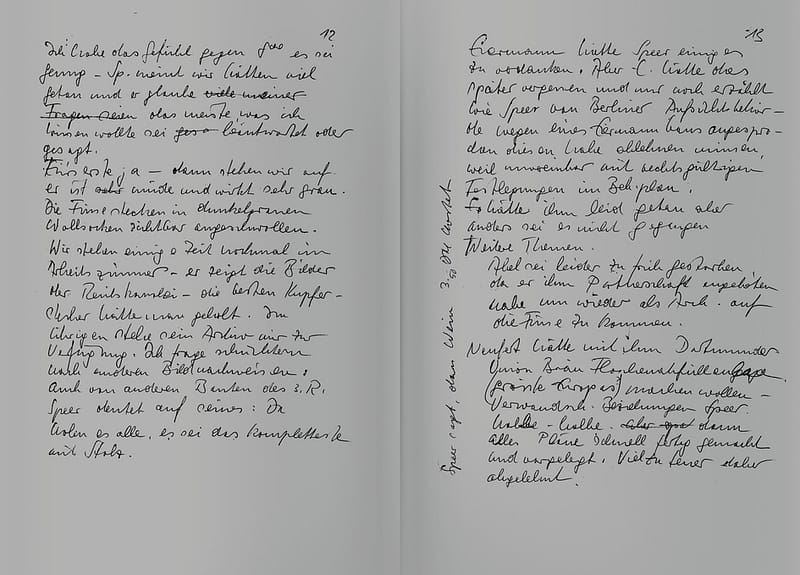 12
Ich habe das Gefühl gegen 8⁰⁰ es sei
genug – Sp. meint wir hätten viel
getan und er glaube viele meiner
Fragen seien das meiste was ich
wissen wollte sei beantwortet oder
gesagt.
Fürs erste ja – dann stehen wir auf.
er ist sehr müde und wirkt sehr grau.
Die Füsse stecken in dunkelgrauen
Wollsocken sichtbar angeschwollen.
Wir stehen einige Zeit nochmal im
Arbeitszimmer – er zeigt die Bilder
der Reichskanzlei – die besten Kupfer-
stecher hätte man geholt. Im
übrigen stehe sein Archiv mir zur
Verfügung. Ich frage schüchtern
nach anderen Bildnachweisen:
Auch von anderen Bauten des 3. R.
Speer deutet auf seines: Da
holen es alle, es sei das kompletteste
mit Stolz.
13
Eiermann hätte Speer einiges
zu verdanken. Aber E. hätte das
später vergessen und nur noch erzählt
wie Speer von Berliner Aufsichtsbehör-
de wegen eines Eiermann baus angespro-
den diesen habe ablehnen müssen,
weil unvereinbar mit rechtsgültigen
Festlegungen im Beb.plan.
Es hätte ihm leid getan aber
anders sei es nicht gegangen
Weitere Themen.
Abel sei leider zu früh gestorben
da er ihm Partnerschaft angeboten
habe um wieder als Arch. auf
die Füsse zu kommen.
Neufert hätte mit ihm Dortmunder
Union Bräu Flaschenabfüllanlage
(grösste Europas) machen wollen –
Verwandsch. Beziehungen Speer.
Hätte - hätte. aber dann
alles Pläne schnell fertig gemacht
und vorgelegt. Viel zu teuer daher
abgelehnt.
Speer sagt, der Wein 3.50 DM kostet